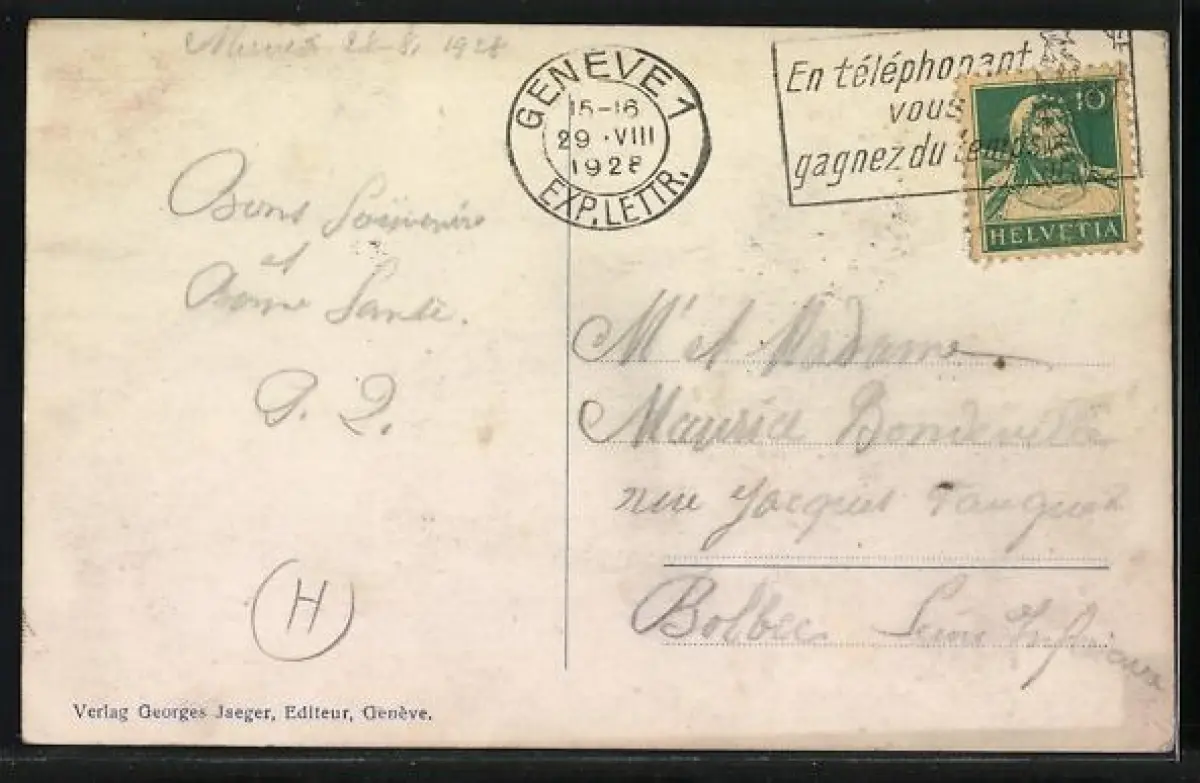 28-8. 1928
GENÈVE 1
15-16
29.VIII
1928
EXP. LETTR.
En téléphonant
vous
gagnez du temps
10
HELVETIA
Bons Souvenirs
et
Bonne Santé.
M' et Madame
Maurice Bondeville
rue Jacques Fauquet
Bolbec Seine Inférieure
H
Verlag Georges Jaeger, Editeur, Genève.